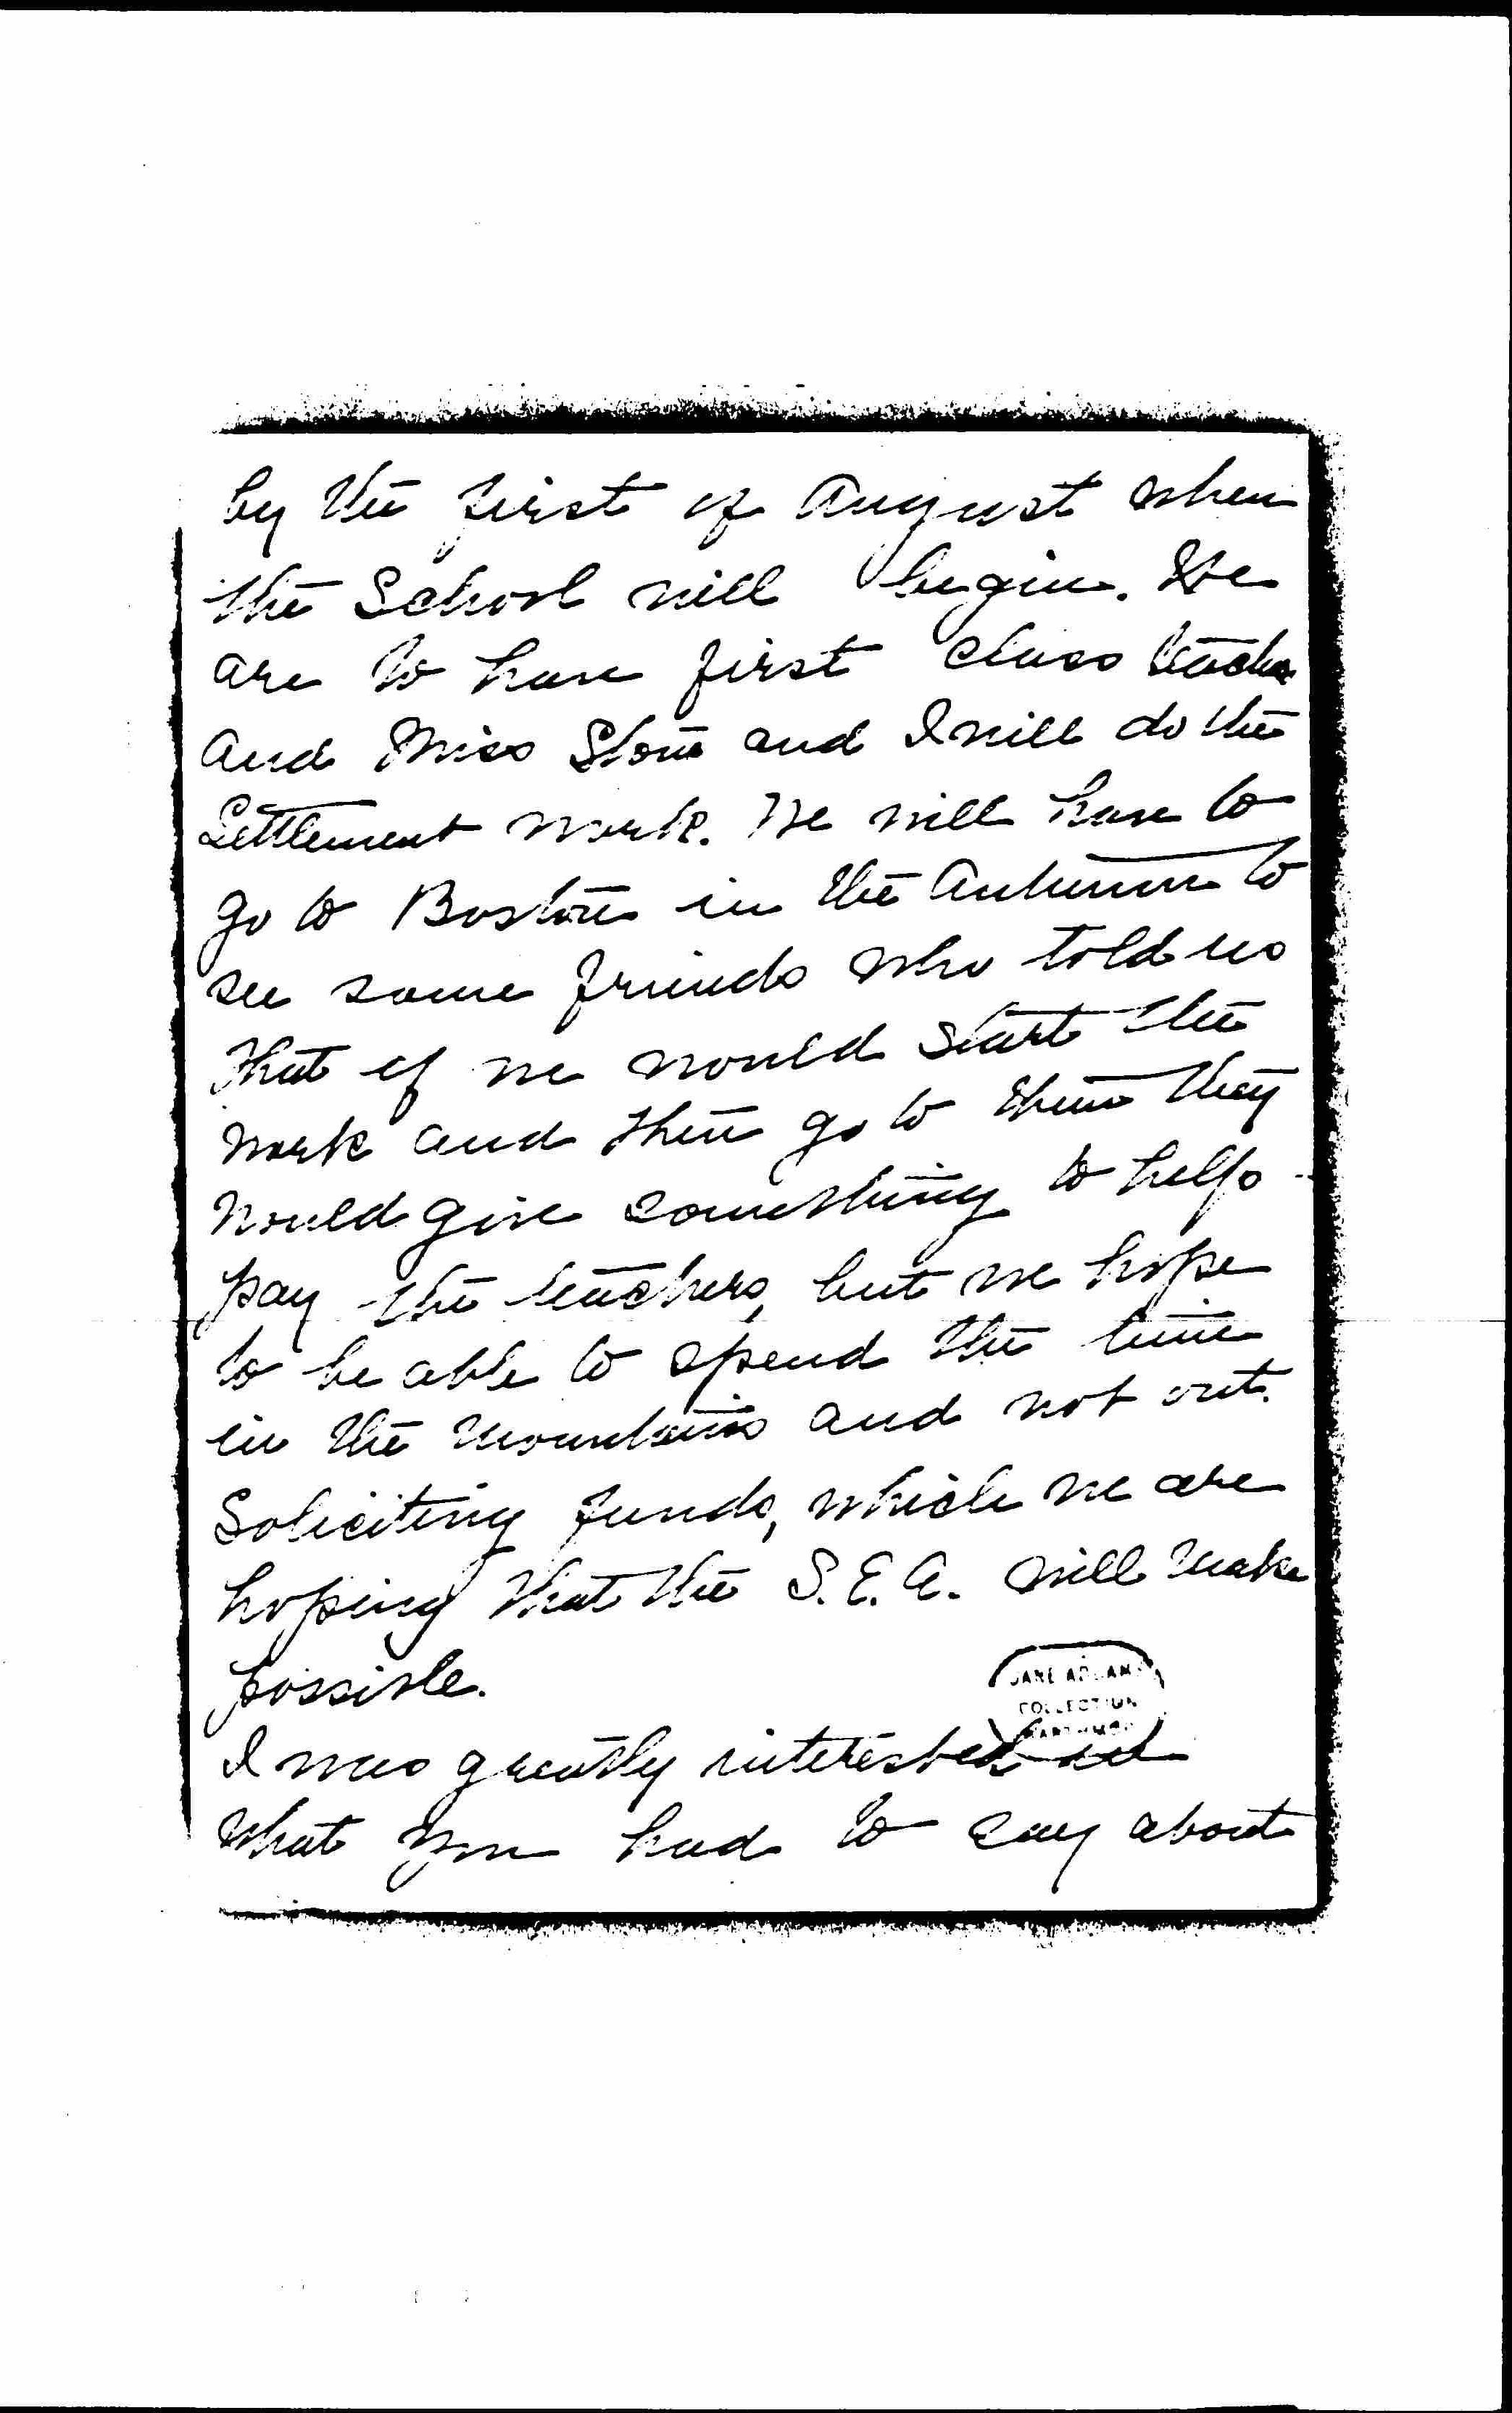 by the first of August when
the School will begin. We
are to have first class teachers
and Miss Stone and I will do the
Settlement work. We will have to
go to Boston in the Autumn to
see some friends who told us
that if we would start the
work and then go to them they
would give something to help
pay the teachers, but we hope
to be able to spend the time
in the mountains and not out
Soliciting funds, which we are
hoping that the S.E.A. will make
possible.
JANE ADDAMS
COLLECTION
SWARTHMORE
I was greatly interested in
what you had to say about